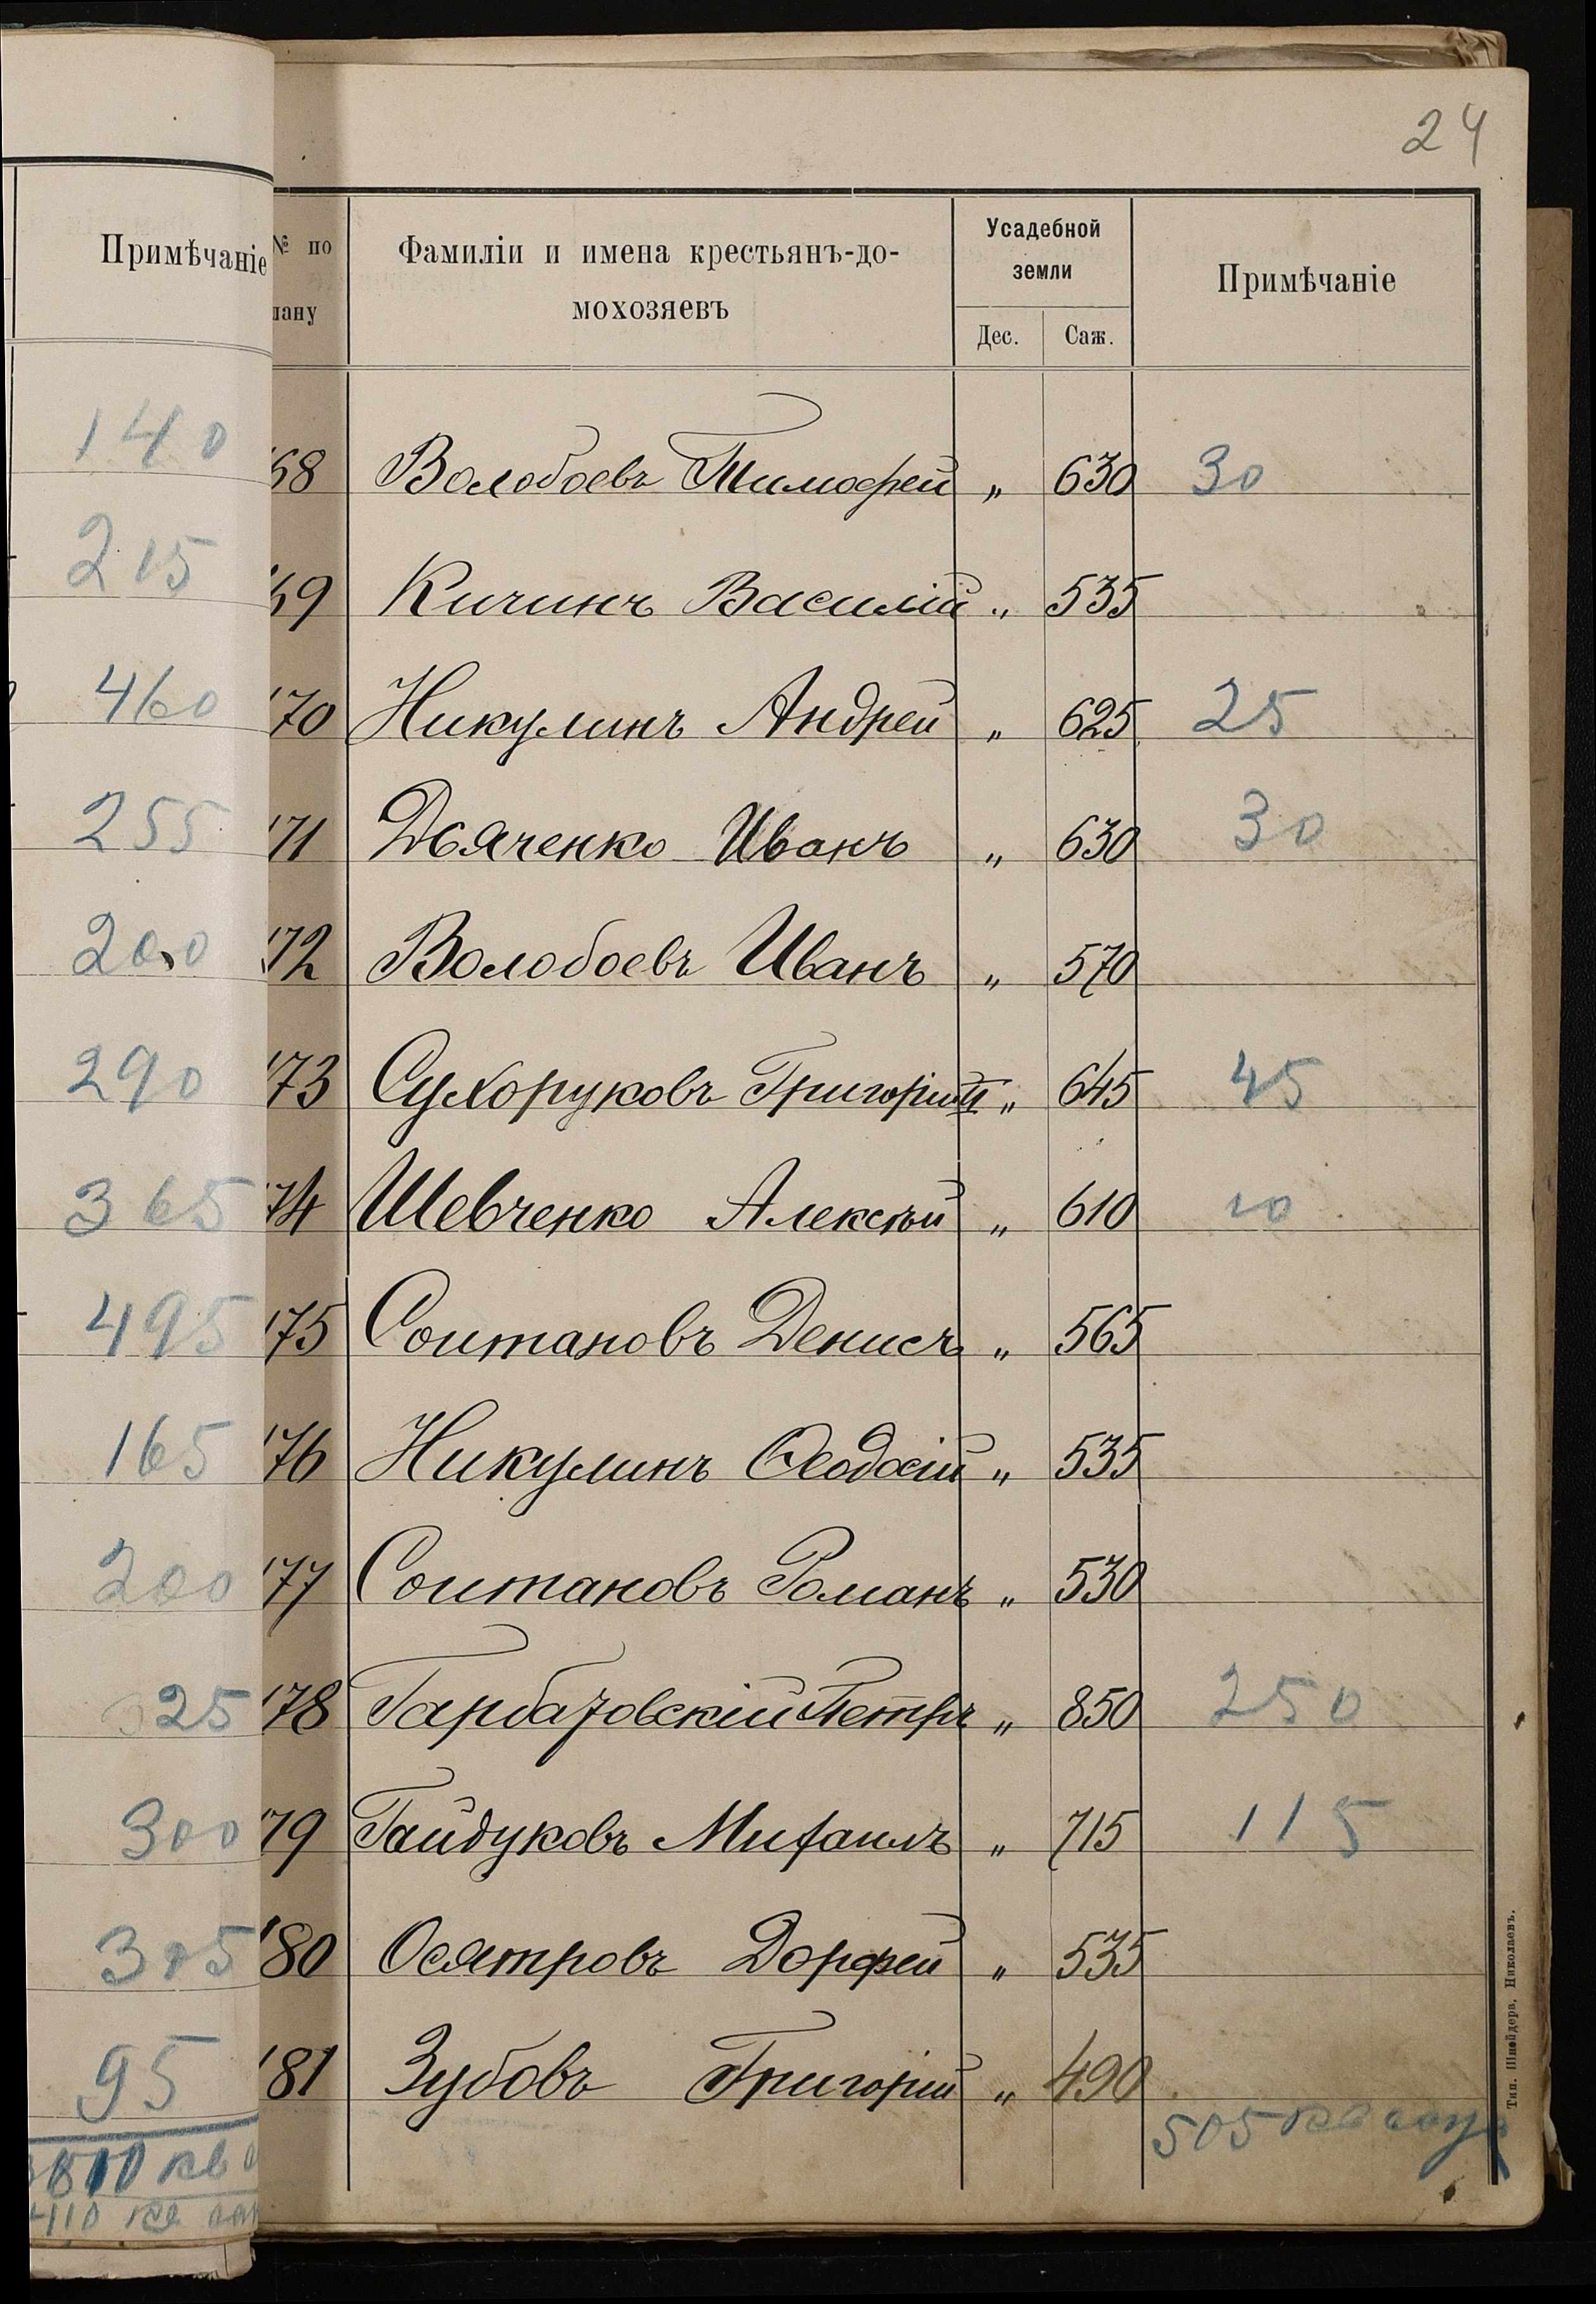 24
Примѣчаніе
140
215
460
255
200
290
365
495
165
200
25
300
305
95
110 кв
№ по
лану
Фамиліи и имена крестьянъ-до-
мохозяевъ
Усадебной
земли
Дес. Саж.
Примѣчаніе
168 Волобоевъ Тимофей „ 630 30
169 Кичинъ Василій „ 535
170 Никулинъ Андрей „ 625 25
171 Дьяченко Иванъ „ 630 30
172 Волобоевъ Иванъ „ 570
173 Сухоруковъ Григорій „ 645 45
174 Шевченко Алексѣй „ 610 10
175 Солтановъ Денисъ „ 565
176 Никулинъ Ѳеодосій „ 535
177 Солтановъ Романъ „ 530
178 Гарбазовскій Петръ „ 850 250
179 Гайдуковъ Михаилъ „ 715 115
180 Осятровъ Дорфей „ 535
181 Зубовъ Григорій „ 490
505 кв саж
Тип. Шнейдера, Николаевъ.